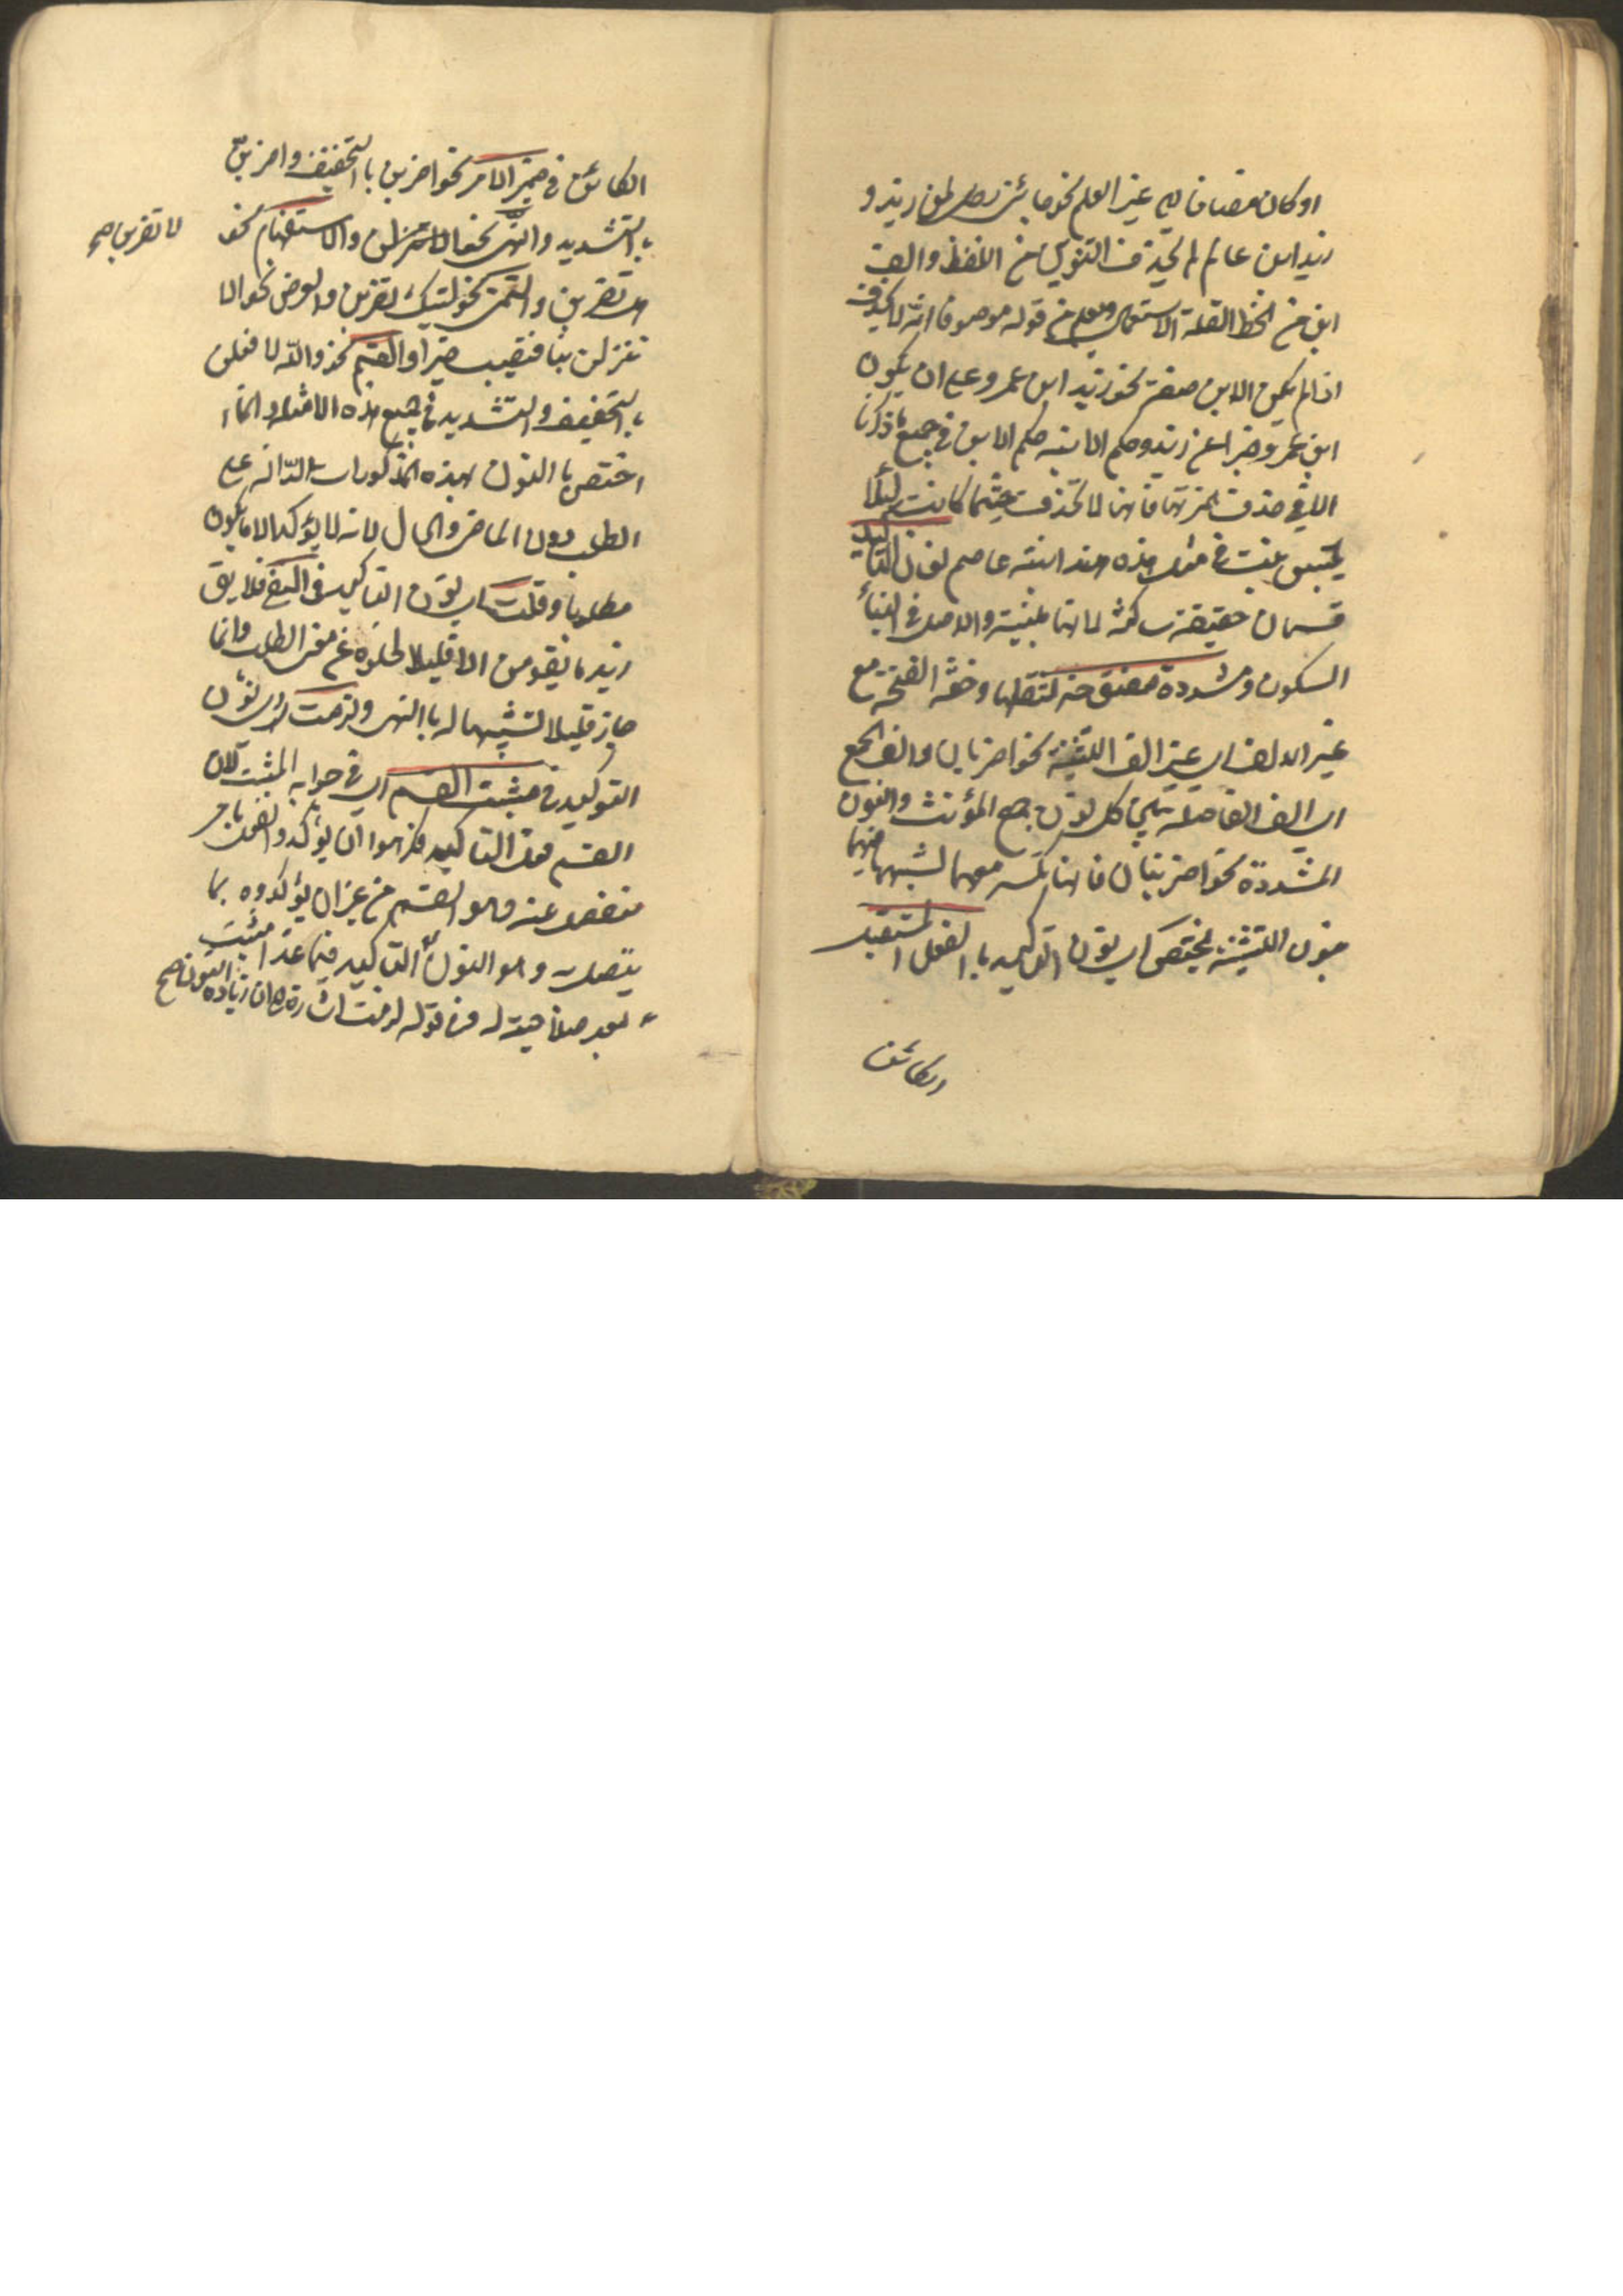 او كان مضافا الى غير العلم نحو جائنى رجل ابن زيد و
زيد ابن عالم لم يحذف التنوين من اللفظ والف
ابن من الخط لقلة الاستعمال ويعلم من قوله موصوفا انه لا يحذف
اذا لم يكن الابن صفة نحو زيد ابن عمرو على ان يكون
ابن عمرو خبرا عن زيد وحكم الابنة حكم الابن في جميع ما ذكرنا
الا في حذف همزتها فانها لا تحذف حيثما كانت لئلا
يلتبس ببنت في مثل هذه هند ابنة عاصم نون التأكيد
قسمان خفيفة ساكنة لانها مبنية والاصل في البناء
السكون ومشددة مفتوحة لثقلها وخفة الفتحة مع
غير الالف اى غير الف التثنية نحو اضربان والف الجمع
اى الف الفاصلة بين نون جمع المؤنث والنون
المشددة نحو اضربنان فانها تكسر معهما لشبهها فيهما
بنون التثنية يختص اى نون التاكيد بالفعل المستقبل
الكائن
الكائن في ضمن الامر نحو اضربن بالتخفيف واضربنّ
بالتشديد والنهى نحو والاستفهام نحو
لا تضربن صح
هل تضربن والتمنى نحو ليتك تضربن والعرض نحو الا
تنزلن بنا فتصيب خيرا والقسم نحو والله لافعلن
بالتخفيف والتشديد في جميع هذه الامثلة وانما
اختص بالنون بهذه المذكورات الدالة على
الطلب دون الماضى والحال لانه لا يؤكد الا ما يكون
مطلوبا وقلت اى نون التاكيد في النفى فلا يق
زيد ما يقومن الا قليلا لخلوه عن معنى الطلب وانما
جاز قليلا تشبيها له بالنهى ولزمت اى نون
التوكيد في مثبت القسم اى في جوابه المثبت لان
القسم محل التاكيد فكرهوا ان يؤكدوا الفعل بامر
منفصل عنه وهو القسم من غير ان يؤكدوه بما
يتصل به وهو النون التاكيد فيما عدا مثبت
بعد صلاحيته له من قوله لزمت اشارة الى ان زيادة النون صح